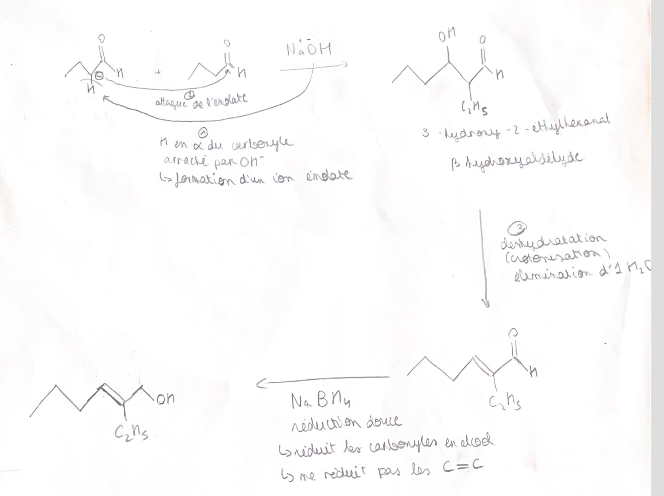 O
H
⊖
H
+
O
H
NaOH
② attaque de l'énolate
①
H en α du carbonyle
arraché par OH⁻
↳ formation d'un ion énolate
OH
O
H
C₂H₅
3-hydroxy-2-éthylhexanal
β hydroxyaldéhyde
③
déshydratation
(crotonisation)
élimination d'1 H₂O
O
H
C₂H₅
NaBH₄
réduction douce
↳ réduit les carbonyles en alcool
↳ ne réduit pas les C=C
OH
C₂H₅